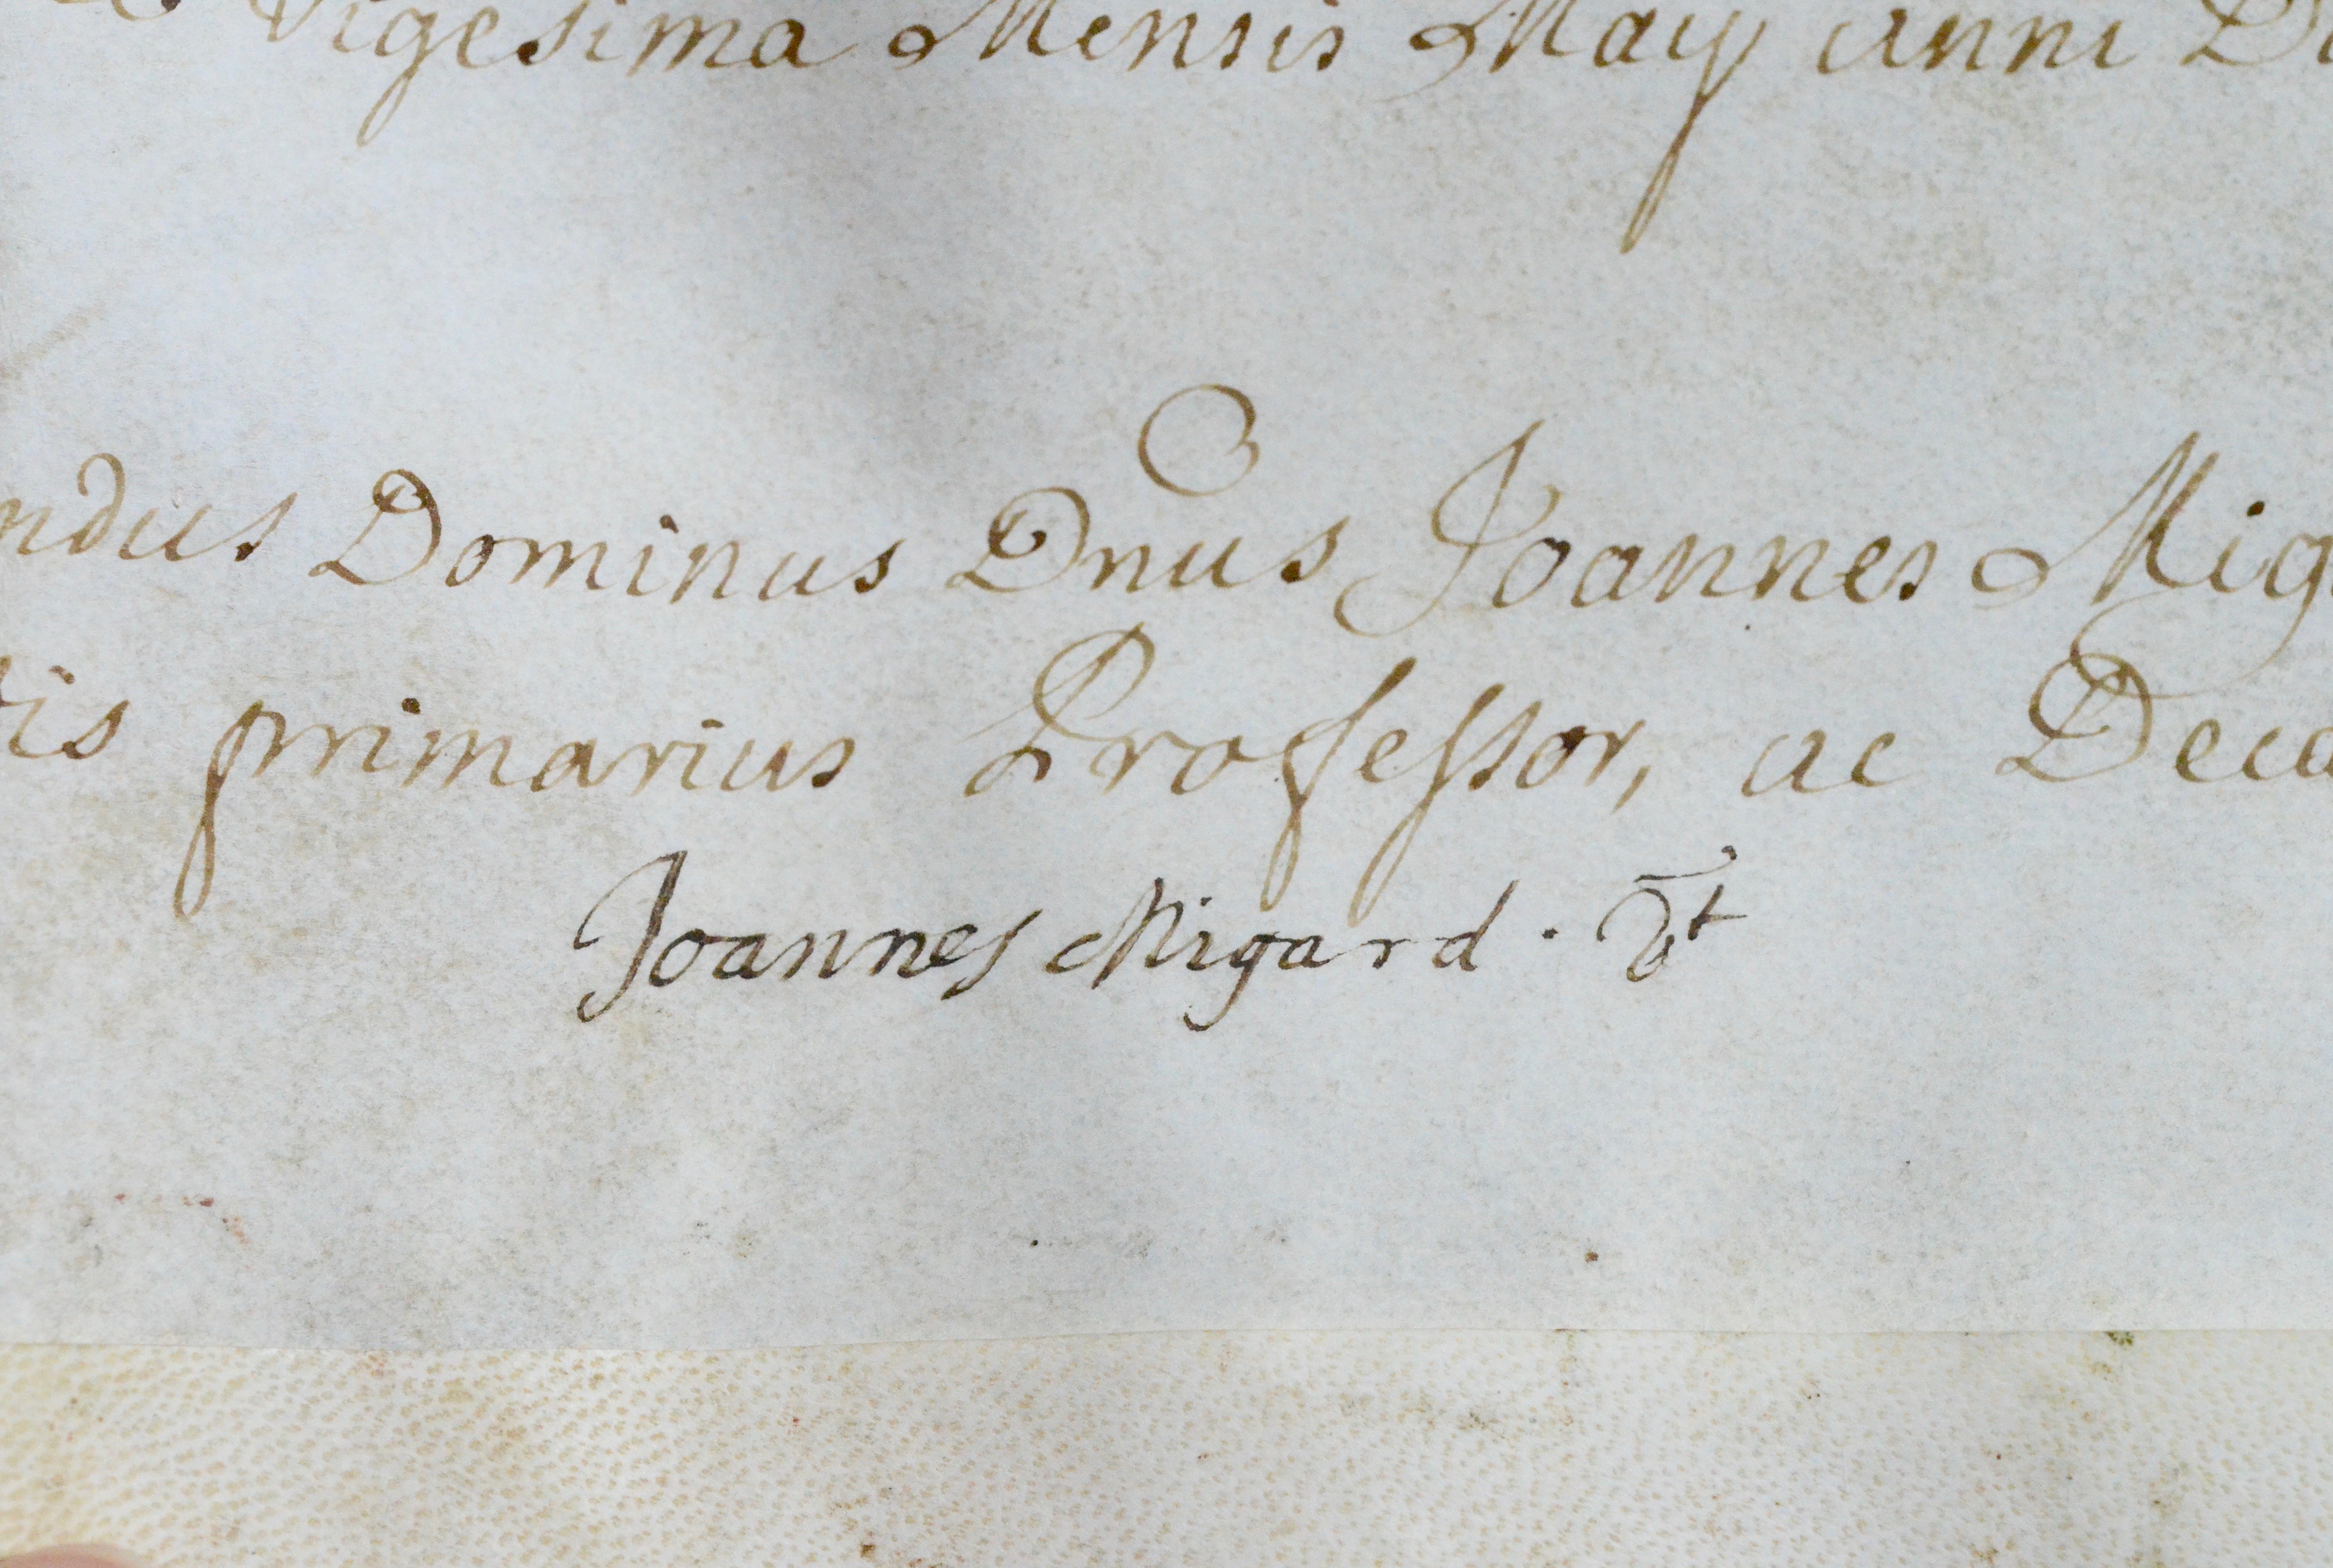 Vigesima Mensis Maÿ anni D
ndus Dominus Dnus Joannes Mig
tis primarius Professor, ac Deca
Joannes Migard.